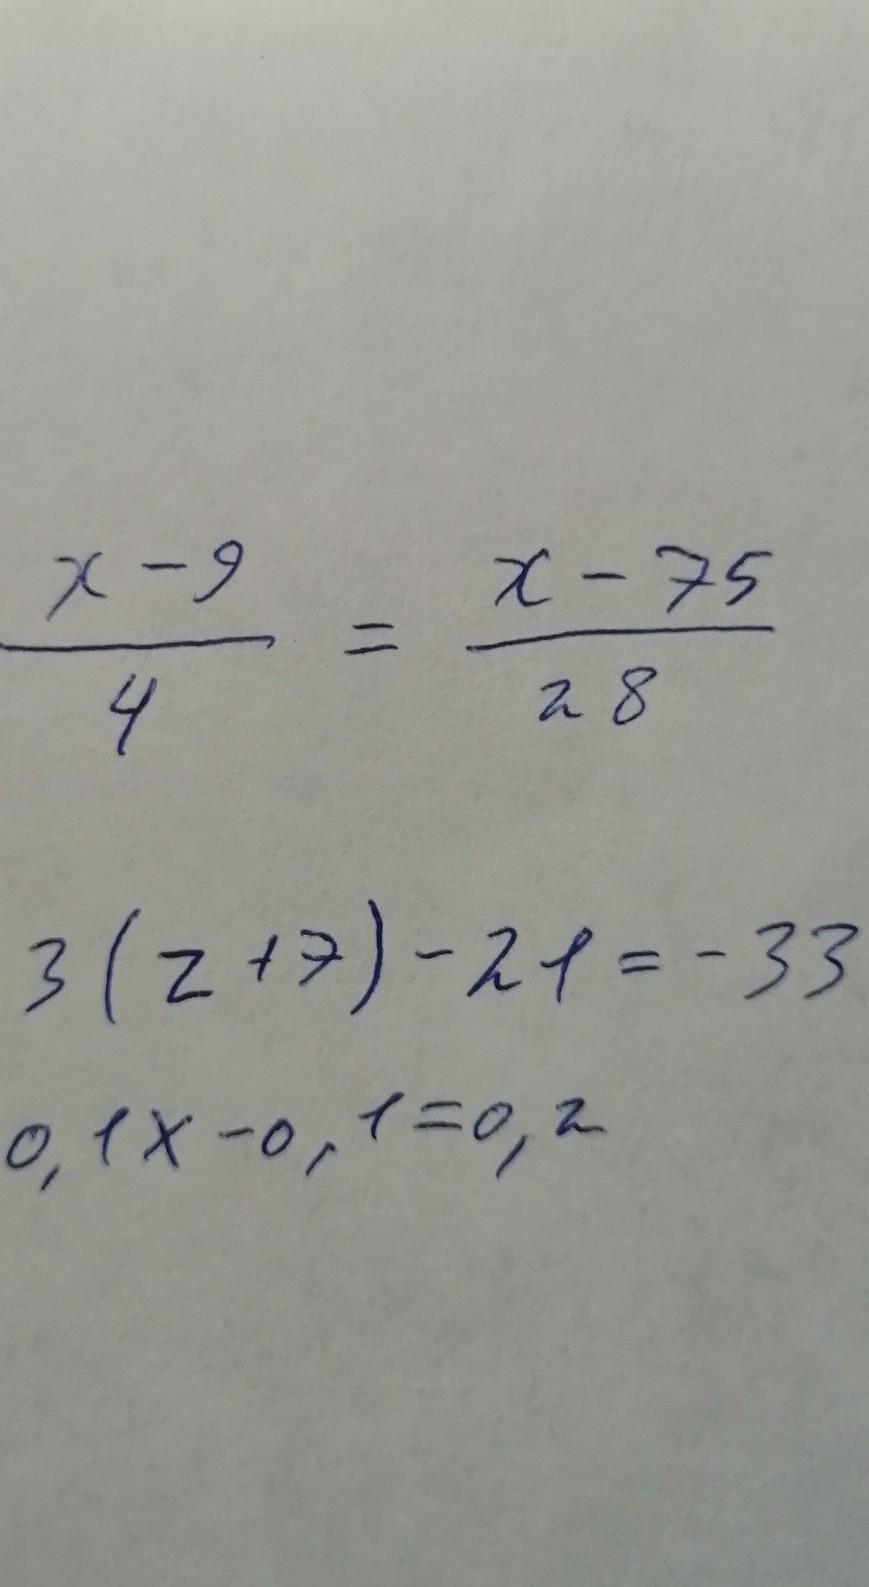 x - 9 / 4 = x - 75 / 28
3(z+7)-21=-33
0,1x-0,1=0,2